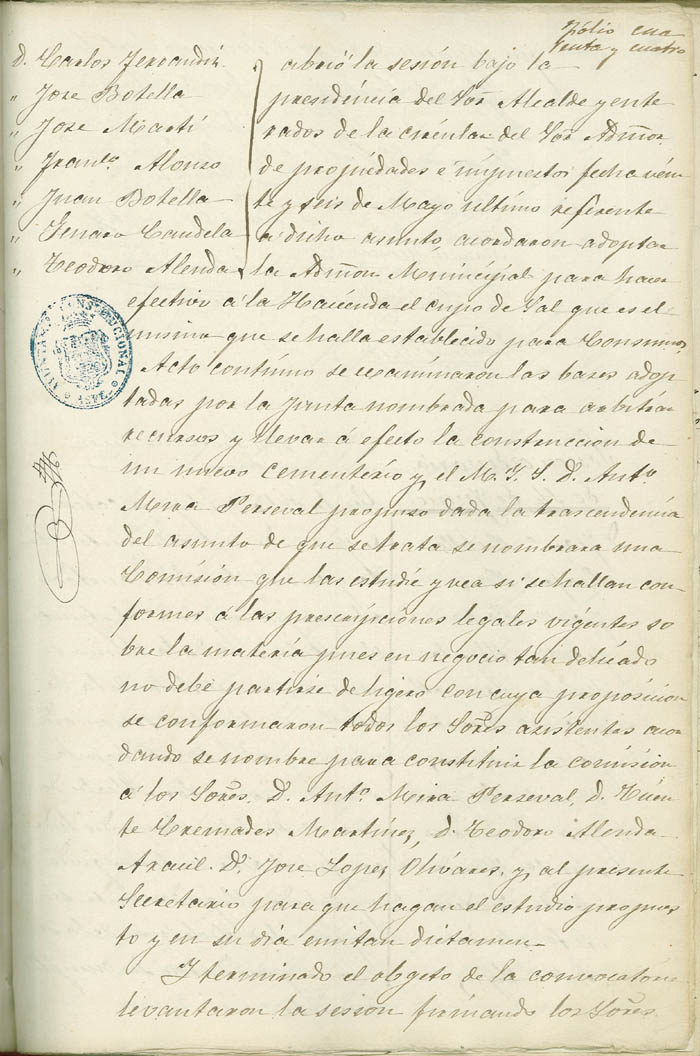 Fólio cua
renta y cuatro
D. Carlos Ferrandiz
" Jose Botella
" Jose Martí
" Franco. Alonso
" Juan Botella
" Genaro Candela
" Teodoro Alenda
abrió la sesión bajo la
presidéncia del Sor. Alcalde y ente
rados de la circular del Sor Admor.
de propiedades é impuestos fecha véin
te y seis de Mayo ultimo referente
a dicho asunto, acordaron adoptar
la Admon Municipal para hacer
efectivo á la Hacienda el cupo de Sal que es el
mismo que se halla establecido para Consumos.
Acto contínuo se examinaron las bases adop
tadas por la Junta nombrada para arbitrar
recursos y llevar á efecto la construccion de
un nuevo cementerio y, el M. I. S. D. Anto.
Mira Perseval propuso dada la trascendencia
del asunto de que se trata se nombrara una
Comisión que las estudie y vea si se hallan con-
formes a las prescripciones legales vigentes so
bre la materia pues en negocio tan delicado
no debe partirse de ligero con cuya proposicion
se conformaron todos los Sores. asistentes acor
dando se nombre para constituir la comisión
á los Sores. D. Anto. Mira Perseval, D. Vicen
te Cremades Martínez, D. Teodoro Alenda
Aracil. D. Jose Lopez Olivares y, al presente
Secretario para que hagan el estudio propues
to y en su dia emitan dictamen.
I terminado el obgeto de la convocatoria
levantaron la sesion firmando los Sores.
AYUNTAMIENTO CONSTITUCIONAL